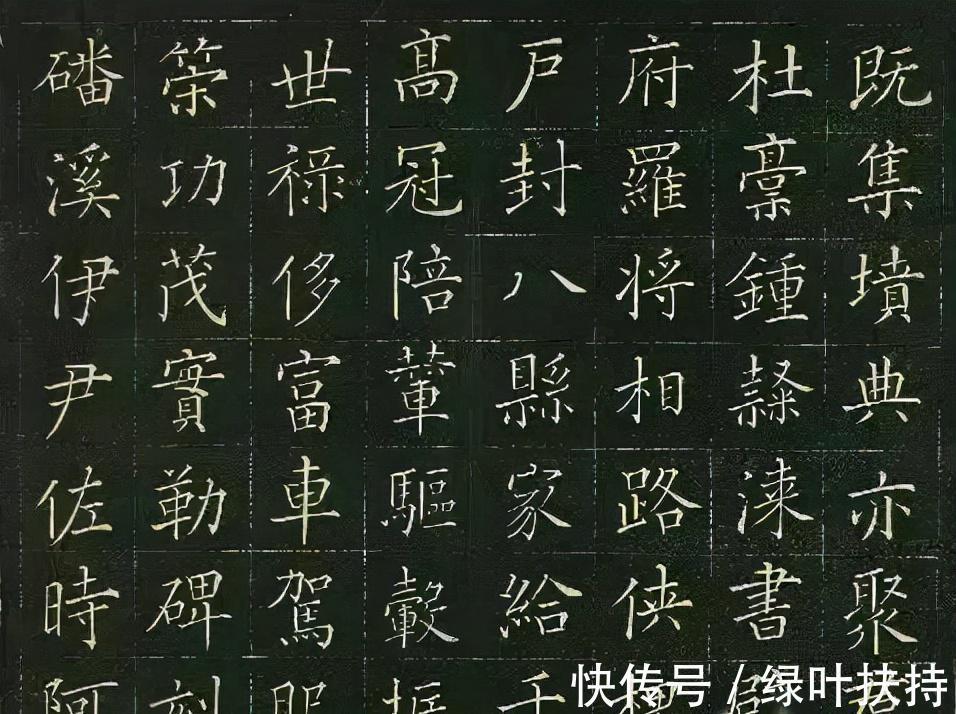 既集墳典亦聚
杜稾鍾隷漆書
府羅将相路俠
户封八縣家給千
髙冠陪輦驅轂振
世禄侈富車駕肥
策功茂實勒碑刻
磻溪伊尹佐時阿
快传号 / 绿叶扶持